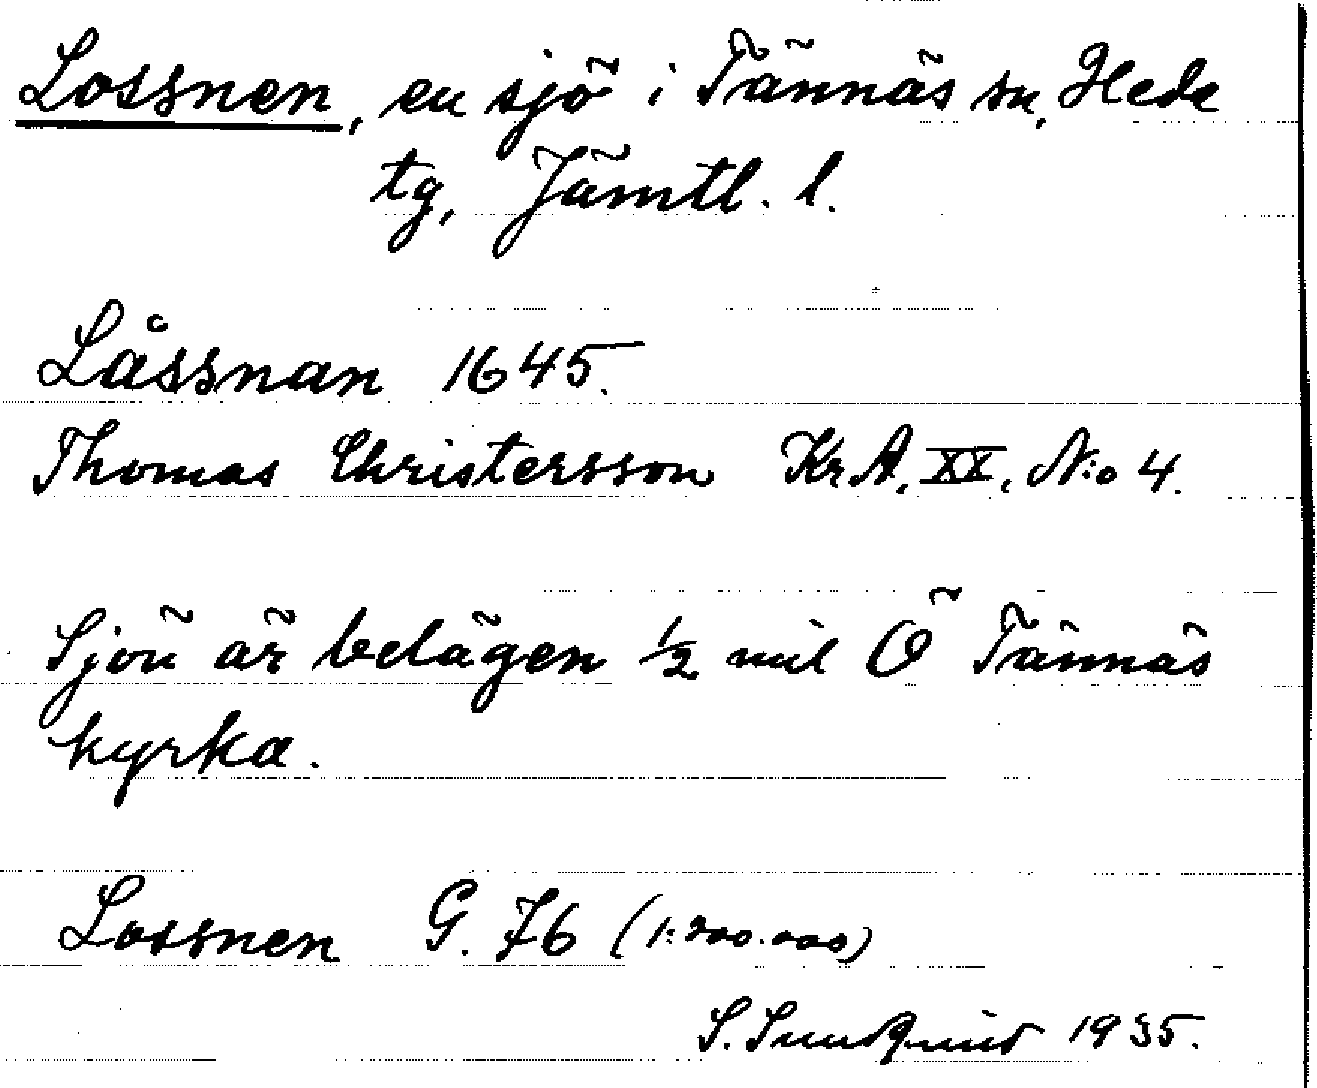 Lossnen, en sjö i Tännäs sn, Hede
tg, Jämtl. l.
Låssnan 1645.
Thomas Christersson Kr.A. XX, N:o 4.
Sjön är belägen 1/2 mil Ö Tännäs
kyrka.
Lossnen G. 76 (1:200.000)
S. Sundqvist 1935.